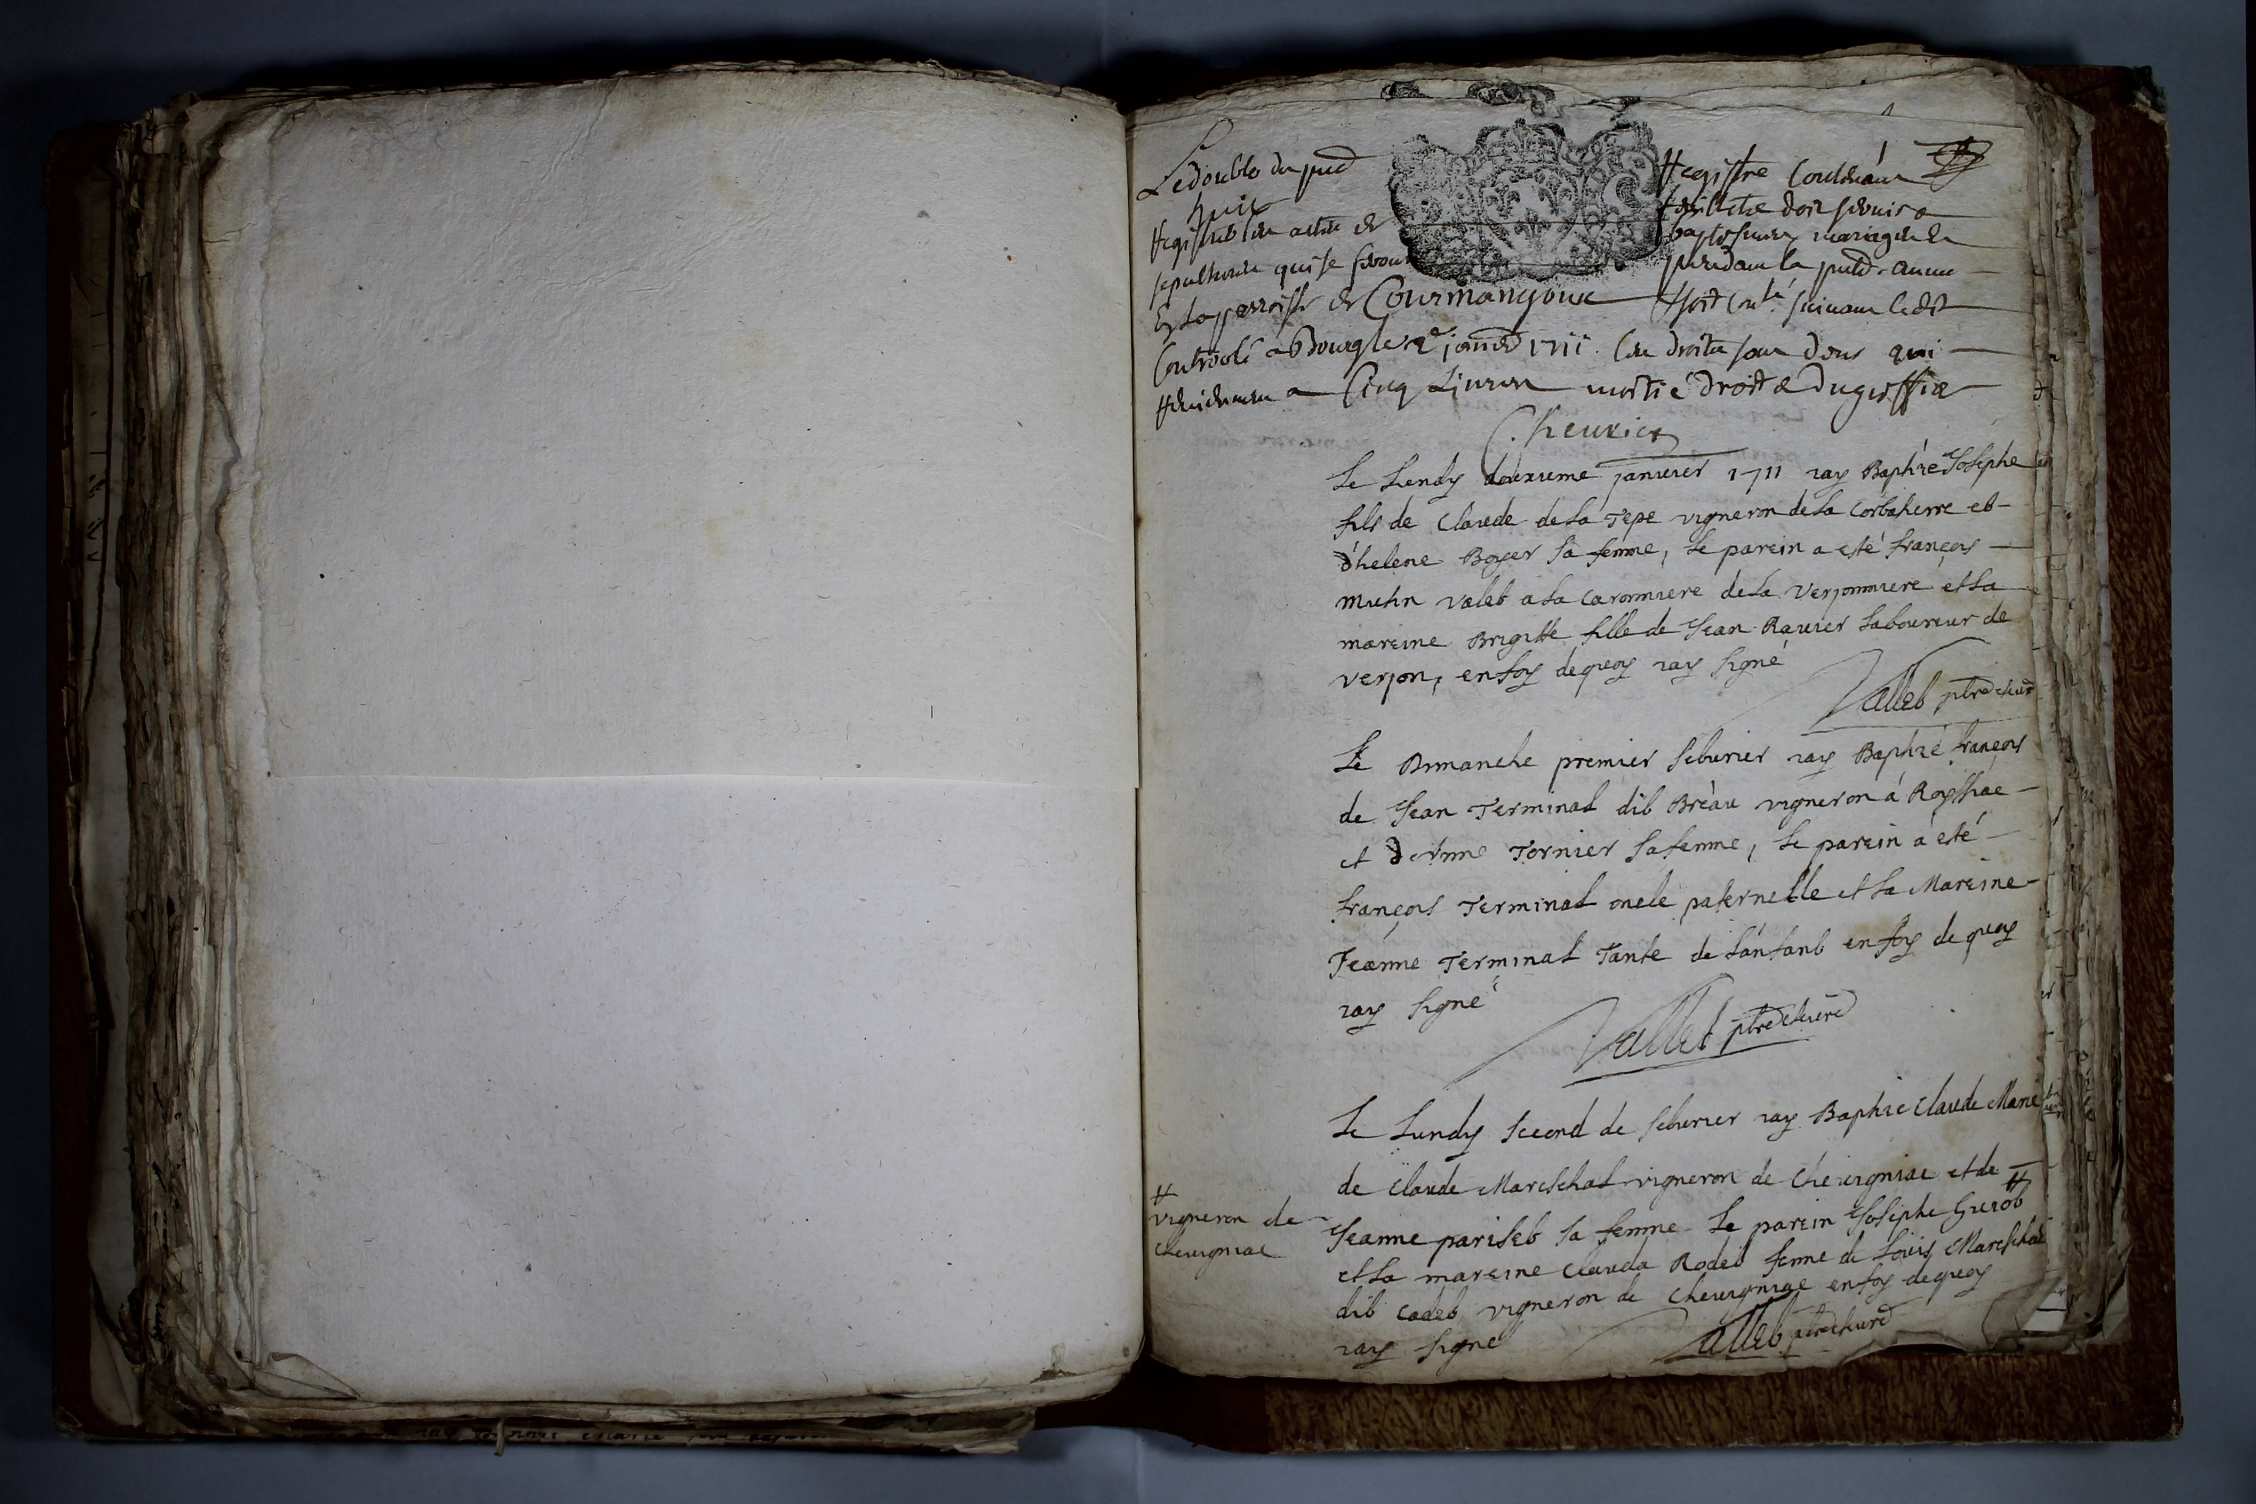 Le double du pnt Registre Contenant
huit feuillets doit servir a
Registrer les actes de baptesmes mariages et
sepultures qui se feront pendant la pnte année
En la parroisse de Courmangoux
Controolé a Bourg le 2e janv 1711. Les droits sont deus qui
Reviennent a Cinq Livres moitié droits du greffier
Cheurier
Le Lundy deuxieme januier 1711 iay Baptizé Josephe
fils de Claude de la Tepe vigneron de la Corbatierre et
d'helene Boyer sa femme, le parein a esté françois
mutin valet a la caronniere de la Verjonniere et la
mareine Brigitte fille de Jean Ravier laboureur de
verjon, en foy de quoy iay signé
Vallet ptre & curé
Le Dimanche premier feburier iay Baptizé françois
de Jean Terminal dit Bréau vigneron á Roissiac
et d'Anne Tornier sa femme, le parein á esté
françois Terminal oncle paternelle et la Mareine
Jeanne Terminal Tante de l'anfant en foy de quoy
iay signé
Vallet ptre & curé
Le Lundy second de feburier iay Baptizé Claude Marie
de Claude Mareschal vigneron de Cheuigniac et de
Jeanne pariset sa femme le parein Josephe Guiot #
# vigneron de
Cheuigniac
et la mareine Clauda Rodet femme de Louis Mareschal
dit Cadet vigneron de Cheuigniac en foy de quoy
iay signé
Vallet ptre & curé